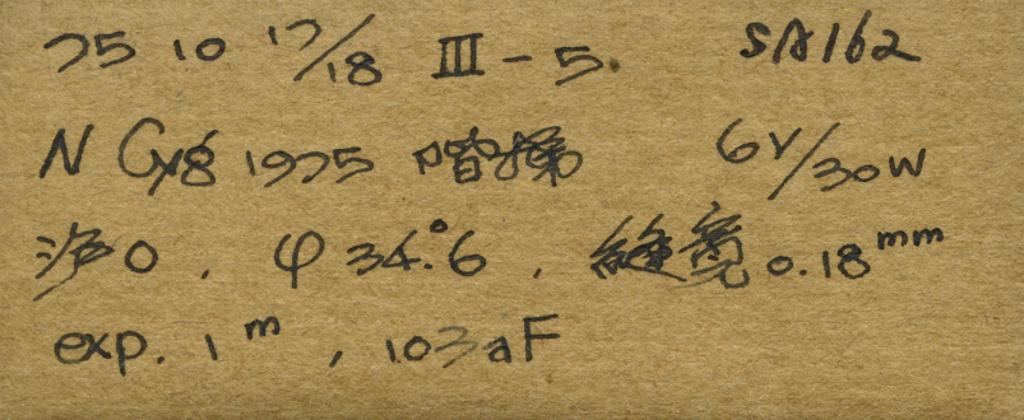 75 10 17/18 III-5. SA162
N Cyg 1975 阶梯 6V/30W
沪0, φ 34.°6, 缝宽 0.18mm
exp. 1m, 103aF